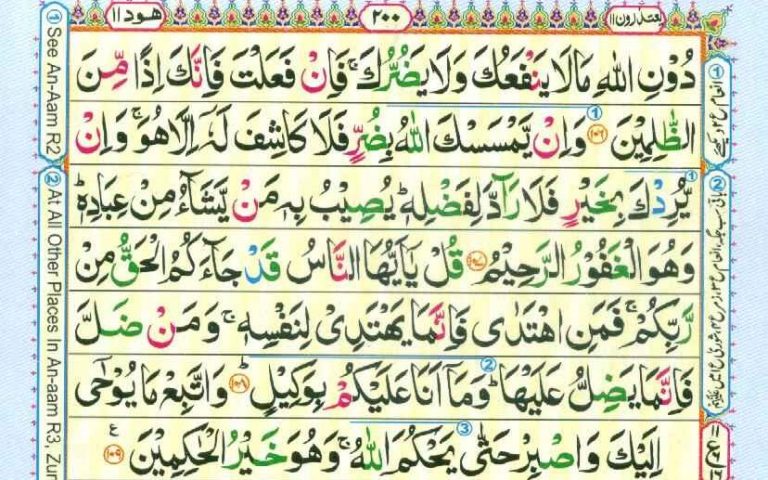 يعتذرون ١١
٢٠٠
هود ١١
دُوْنِ اللّٰهِ مَا لَا يَنْفَعُكَ وَلَا يَضُرُّكَ ۚ فَاِنْ فَعَلْتَ فَاِنَّكَ اِذًا مِّنَ
الظّٰلِمِيْنَ ﴿١٠٦﴾ وَاِنْ يَّمْسَسْكَ اللّٰهُ بِضُرٍّ فَلَا كَاشِفَ لَهٗۤ اِلَّا هُوَ ۚ وَاِنْ
يُّرِدْكَ بِخَيْرٍ فَلَا رَآدَّ لِفَضْلِهٖ ؕ يُصِيْبُ بِهٖ مَنْ يَّشَآءُ مِنْ عِبَادِهٖ ؕ
وَهُوَ الْغَفُوْرُ الرَّحِيْمُ ﴿١٠٧﴾ قُلْ يٰۤاَيُّهَا النَّاسُ قَدْ جَآءَكُمُ الْحَقُّ مِنْ
رَّبِّكُمْ ۚ فَمَنِ اهْتَدٰى فَاِنَّمَا يَهْتَدِيْ لِنَفْسِهٖ ۚ وَمَنْ ضَلَّ
فَاِنَّمَا يَضِلُّ عَلَيْهَا ؕ وَمَاۤ اَنَا عَلَيْكُمْ بِوَكِيْلٍ ﴿١٠٨﴾ وَاتَّبِعْ مَا يُوْحٰۤى
اِلَيْكَ وَاصْبِرْ حَتّٰى يَحْكُمَ اللّٰهُ ۚ وَهُوَ خَيْرُ الْحٰكِمِيْنَ ﴿١٠٩﴾
① See An-Aam R2
② At All Other Places In An-aam R3, Zum